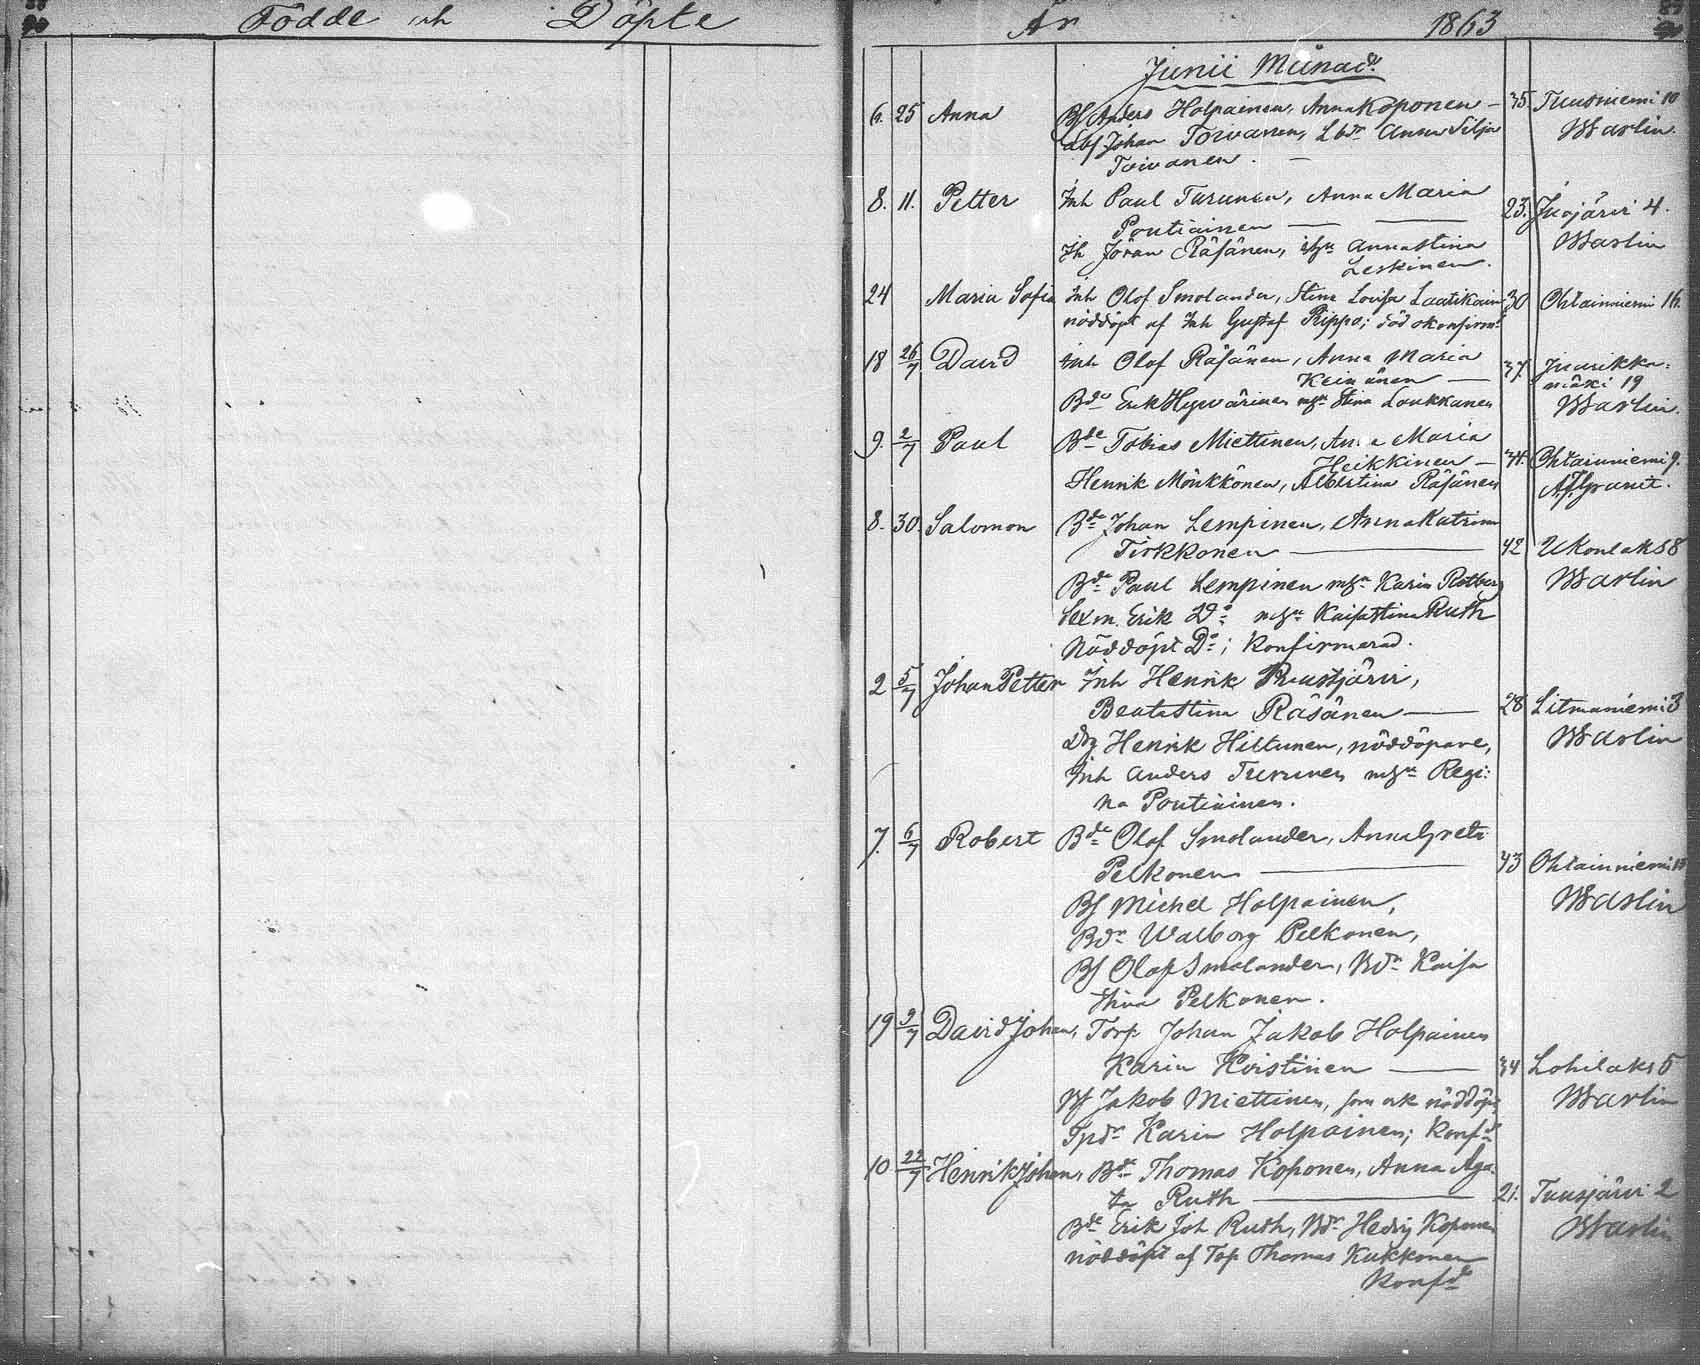 Födde och Döpte
År 1863
Junii Månad.
6. 25 Anna Bf Anders Holpainen, Anna Koponen — 35. Tuusniemi 10
Johan Toivanen, Anna Silja Warlin.
Toivanen. —
8. 11. Petter Inh Paul Turunen, Anna Maria
Poutiainen — 23. Juojärvi 4.
Ih Jöran Räsänen, Anna Stina Warlin
Leskinen.
24 Maria Sofia Inh Olof Smolander, Stina Lovisa Laatikain 30 Ohtainniemi 16.
nöddöpt af Inh Gustaf Rippo; död okonfirm
18 26/7 David Inh Olof Räsänen, Anna Maria 37. Juurikka:
Keinänen — mäki 19
Bde Erik Hyvärinen Stina Loukkanen Warlin.
9. 2/7 Paul Bde Tobias Miettinen, Anna Maria
Heikkinen — 44. Ohtainniemi 9.
Henrik Mönkkönen, Albertina Räsänen
8. 30. Salomon Bde Johan Lempinen, Anna Katrina
Tirkkonen — 42 Ukonlaks 8
Bde Paul Lempinen Karin Rotberg Warlin
Sexm. Erik Do Kaisa Stina Ruth
Nöddöpt Do; Konfirmerad.
2 5/7 Johan Petter Inh Henrik Ruustjärvi,
Beata Stina Räsänen — 28 Litmaniemi 3
Drg Henrik Hiltunen, nöddöpare, Warlin
Inh Anders Turunen Regi:
na Poutiainen.
7. 6/7 Robert Bde Olof Smolander, Anna Greta
Pelkonen — 43 Ohtainniemi
Bf Michel Holpainen, Warlin
Bdr Walborg Pelkonen,
Bf Olof Smolander, Bdr Kaisa
Stina Pelkonen.
19 9/7 David Johan, Torp. Johan Jakob Holpainen
Karin Koistinen — 34 Lohilaks 5
Bf Jakob Miettinen, som ock nöddöpt Warlin
Tpdr Karin Holpainen; Konfd
10 22/7 Henrik Johan, Bde Thomas Koponen, Anna Aga:
ta Ruth — 21. Tuusjärvi 2
Bde Erik Joh Ruth, Bdr Hedvig Koponen Warlin
nöddöpt af Top Thomas Kukkonen
Konfd